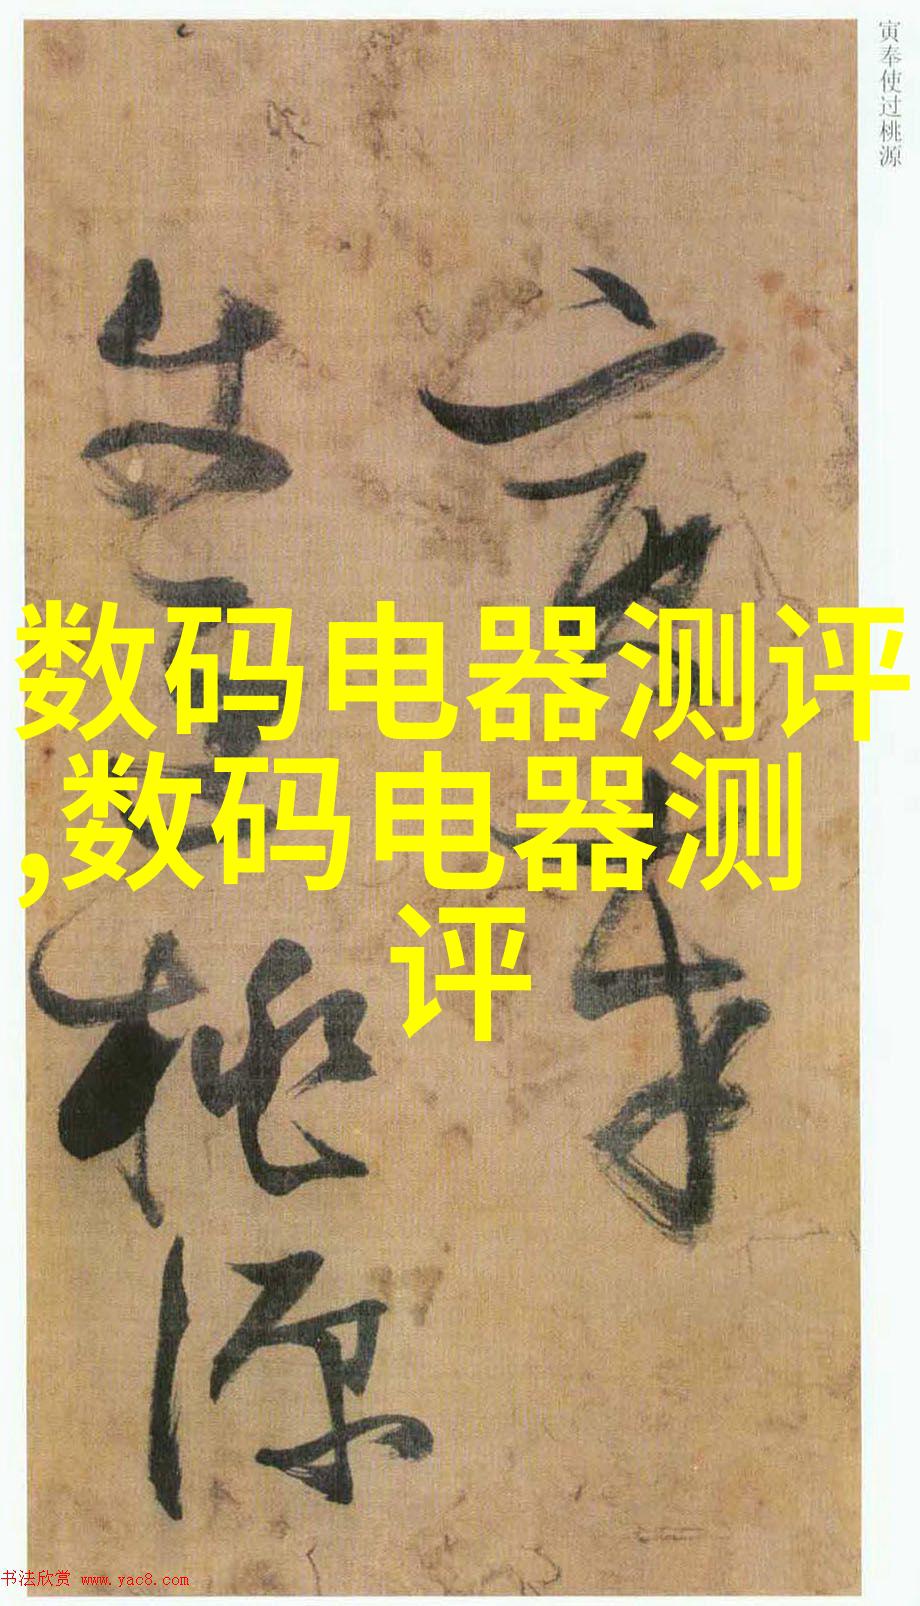 寅奉使过桃源
寅奉
使过桃源
数码电器测评
,数码电器测
评
书法欣赏 www.yac8.com